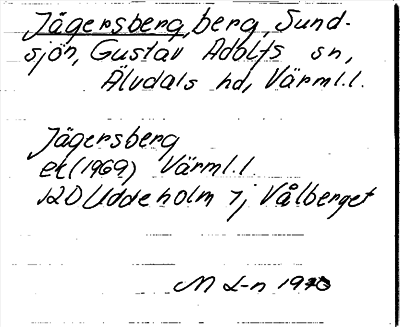 Jägersberg, berg, Sund-
sjön, Gustav Adolfs sn,
Älvdals hd, Värml.l.
Jägersberg
ek (1969) Värml.l.
12D Uddeholm 7j Vålberget
M L-n 1970